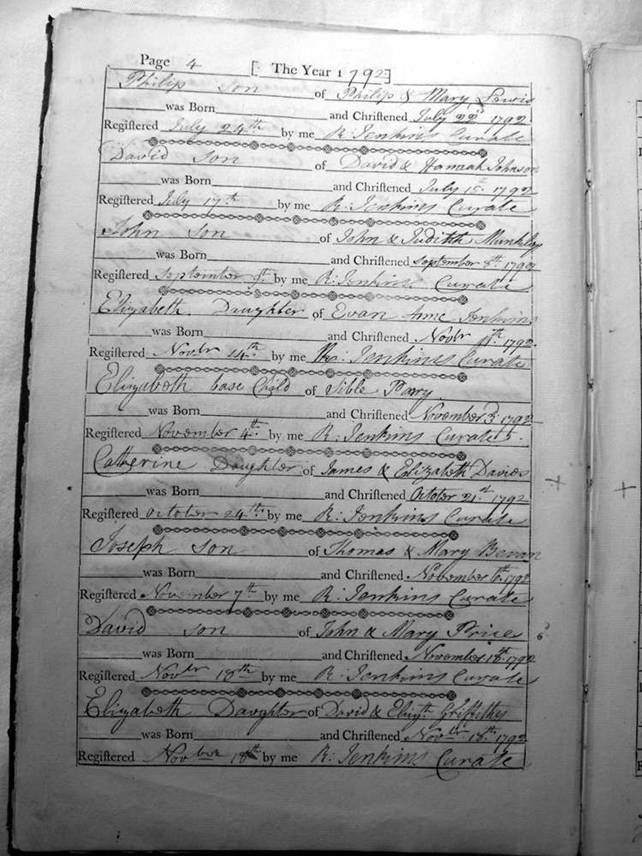 Page 4 [ The Year 1792 ]
Philip Son of Philip & Mary Lewis
was Born and Christened July 22d 1792
Registered July 24th by me R: Jenkins Curate
David Son of David & Hannah Johnson
was Born and Christened July 15th 1792
Registered July 17th by me R: Jenkins Curate
John Son of John & Judith Munkley
was Born and Christened September 8th 1792
Registered September 9th by me R: Jenkins Curate
Elizabeth Daughter of Evan Jenkins
was Born and Christened Novbr 1792
Registered Novbr 14th by me Jenkins Curate
Elizabeth base Child of Sible Parry
was Born and Christened November 3 1792
Registered November 4th by me R: Jenkins Curate
Catherine Daughter of James & Elizabeth Davies
was Born and Christened October 21st 1792
Registered October 24th by me R: Jenkins Curate
Joseph Son of Thomas & Mary Bevan
was Born and Christened November 6th 1792
Registered November 7th by me R: Jenkins Curate
David Son of John & Mary Price
was Born and Christened November 18th 1792
Registered Novbr 18th by me R: Jenkins Curate
Elizabeth Daughter of David & Elizth Griffithes
was Born and Christened Novbr 18th 1792
Registered Novber 18th by me R: Jenkins Curate